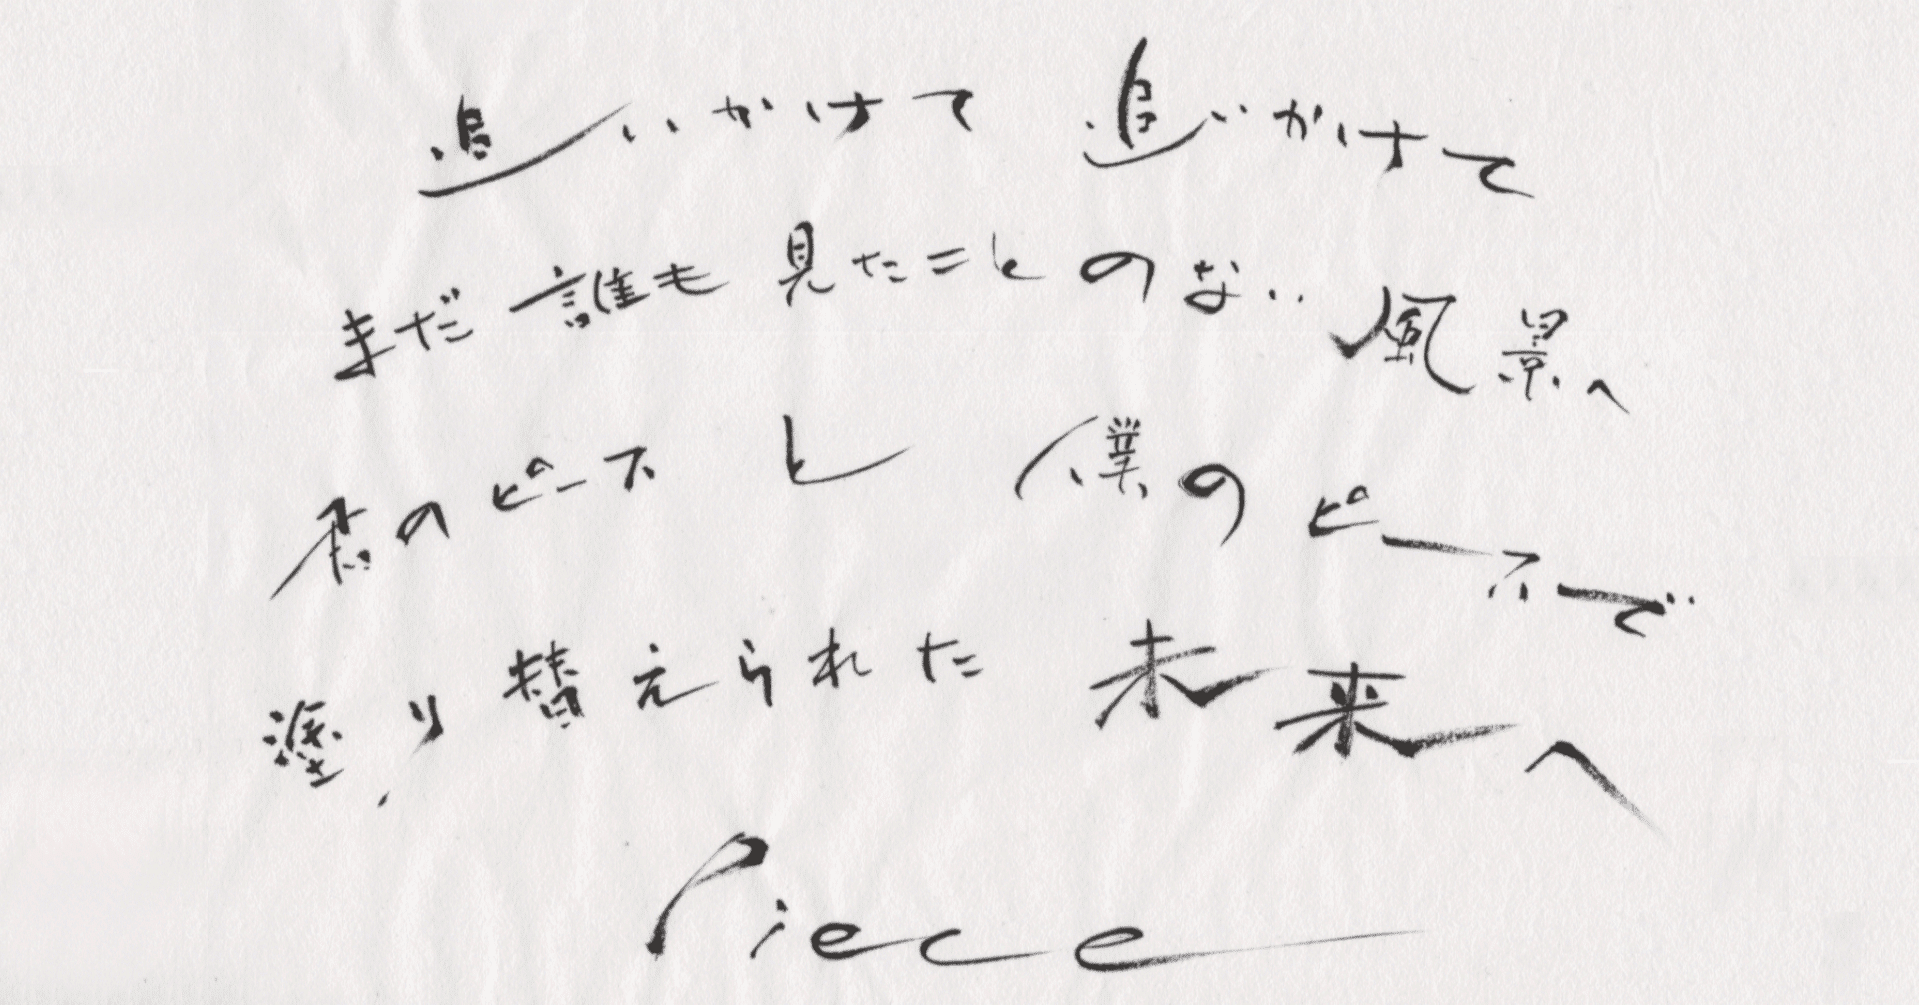 追いかけて 追いかけて
まだ誰も見たことのない風景へ
君のピースと僕のピースで
塗り替えられた未来へ
Piece